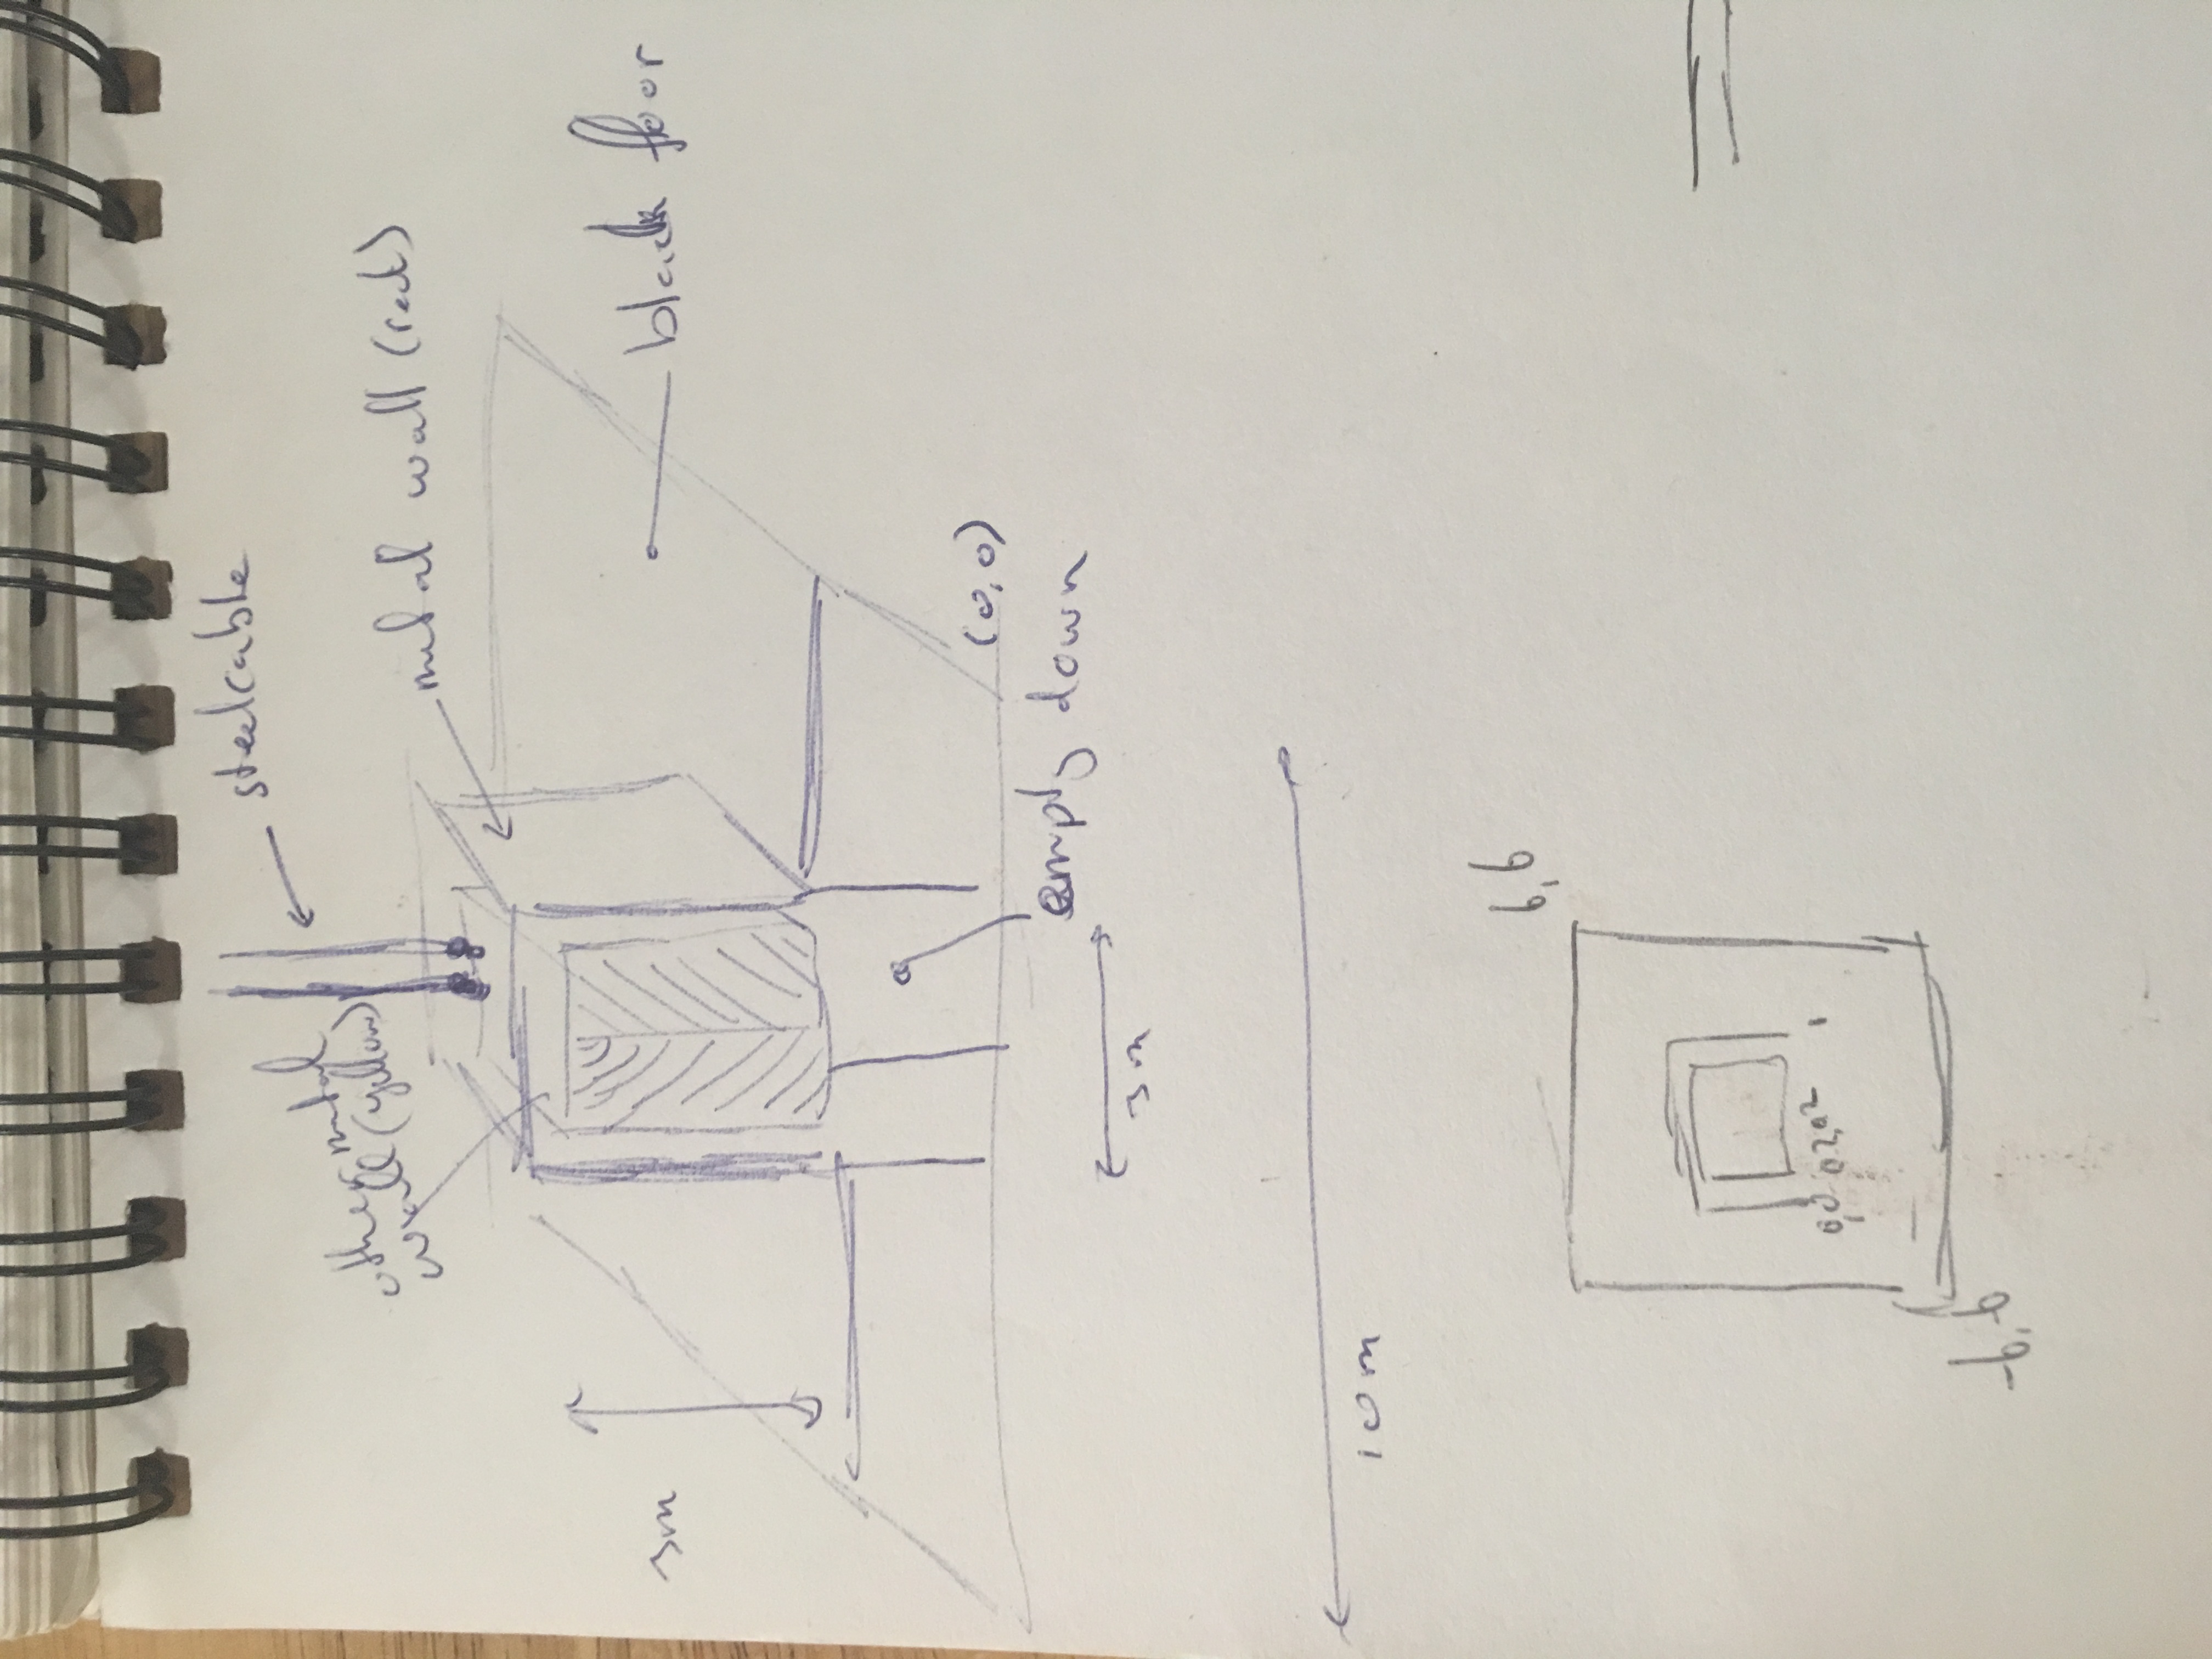 steelcable
other metal
wall (yellow)
metal wall (red)
3m
black floor
(0,0)
empty down
3m
10m
6,6
0,0 02,02
-6,-6